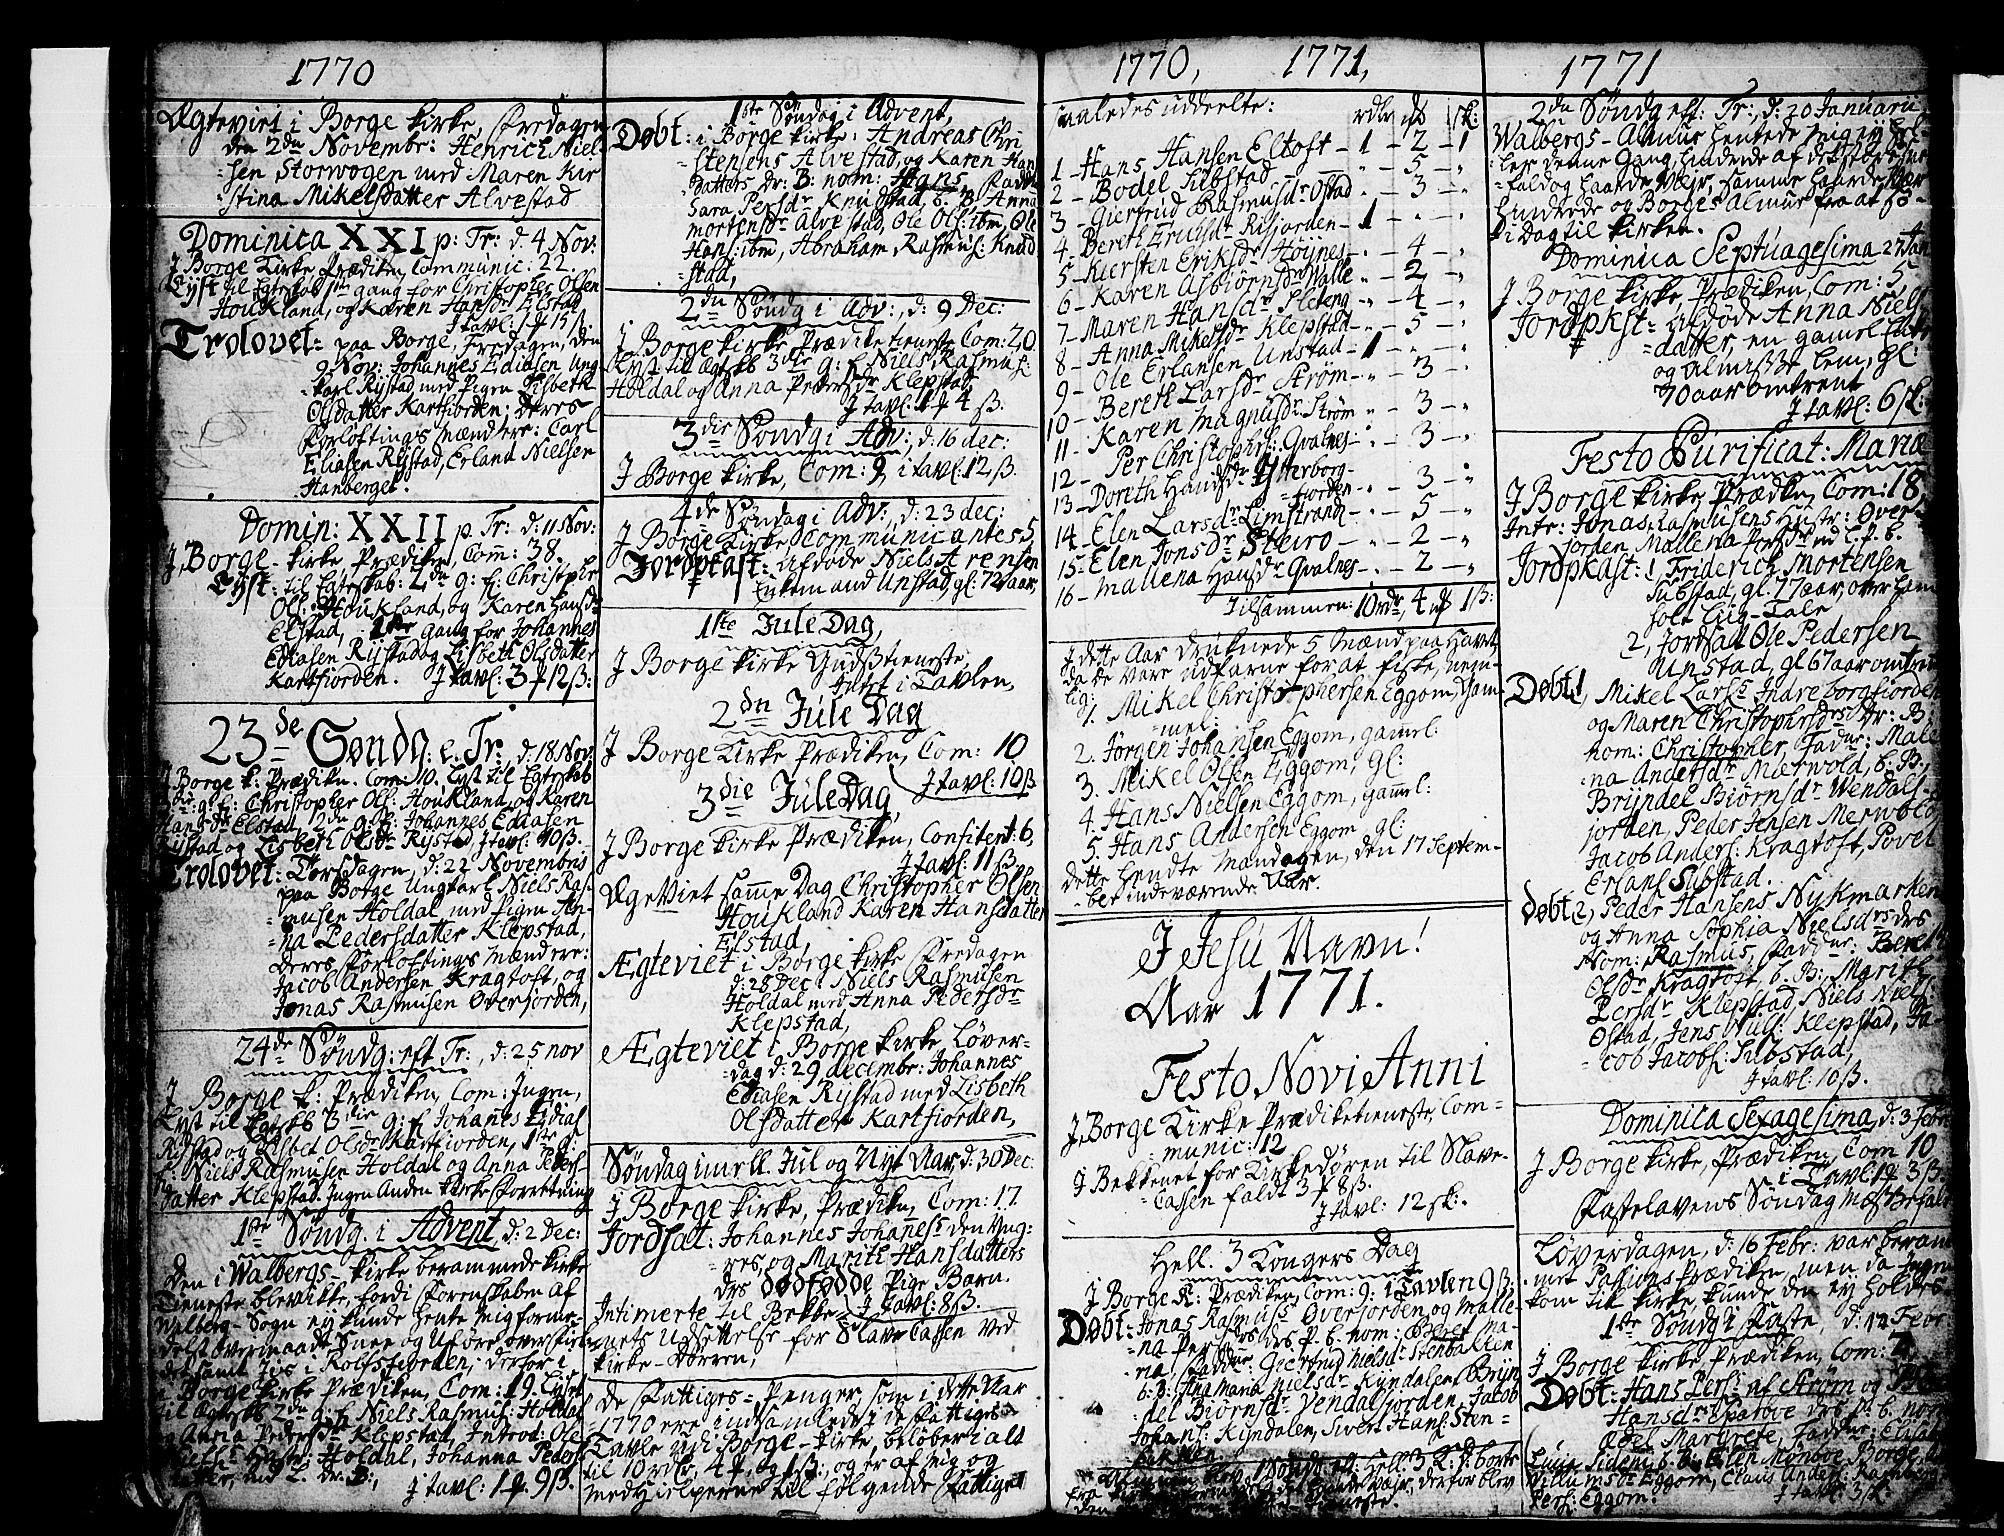 1770
Ægteviet i Borge Kirke, Fredagen
den 2den Novembr: Henrich Niel-
sen Storwogen med Maren Kir
stina Mikelsdatter Alvestad
Dominica XXI p: Tr: d. 4 Nov:
J Borge Kirke Prædiken, Communic: 22.
Lyst til Egteskab 1ste gang for Christopher Olsen
Houkland, og Karen Hansdr Elstad
J tavl: 1 ꝑ 15 ß.
Trolovet: paa Borge, Fredagen, den
9 Nov: Johannes Ediasen Ung
karl Rystad med Pigen Lisbeth
Olsdatter Kartfiorden; deres
Forloftings Mænd ere: Carl
Eliasen Rystad, Erland Nielsen
Hanberget.
Domin: XXII p. Tr: d: 11 Nov:
J Borge-Kirke Prædiken, Com: 38.
Lyst: til Egteskab: 2den g: f: Christopher
Ols: Houkland, og Karen Hansdr
Elstad, 1ste Gang for Johannes
Ediasen Rystad og Lisbeth Olsdatter
Kartfiorden. J tavl: 3 ꝑ 12 ß:
23de Søndg: e. Tr:, d: 18 Nov.
J Borge k: Prædiken. Com: 10. Lyst til Egteskab
3die g: f: Christopher Ols: Houkland og Karen
Hansdr Elstad, 2den g: f: Johannes Ediasen
Rystad og Lisbeth Olsdr Rystad, J tavl: 10 ß.
Trolovet: Torsdagen, d: 22 Novembris
paa Borge Ungkarl Niels Ras-
musen Holdal med Pigen An-
na Pedersdatter Klepstad,
deres Forloftings Mænd ere:
Jacob Andersen Kragtoft, og
Jonas Rasmusen Overjorden,
24de Søndg: eft Tr:, d: 25 nov
J Borge k: Prædiken, Com: Ingen,
Lyst til Egtesk 3die g: f Johannes Edias
Rystad og Lisbet Olsdr Kartfiorden, 1ste g:
f: Niels Rasmusen Holdal og Anna Peders-
datter Klepstad. Ingen Anden Kirke Forretning
1ste Søndg. i Advent, d: 2 Dec:
Den i Walbergs-Kirke berammede Kirke
Tieneste blev ikke, fordi Formskaben af
Walberg-Sogn ey kunde hente mig forme-
delst overmaadt Snee og Ufore over Field
det samt Jiis i Rolfsfiorden; derfor i
Borge Kirke Prædiken, Com: 19. Lyst
til Ægtesk 2den g: f: Niels Rasmus: Holdal
og Anna Pedersdr Klepstad, Introd: Ole
Niels: Hustr: Holdal, Johanna Peders
datter, J tavl: 1 ꝑ 9 ß.
1ste Søndag i Advent,
Døbt: i Borge Kirke: Andreas Chri
stensens Alvestad, og Karen Hans
datters dr: B: nom: Hans, Fadd:
Sara Persdr Knudstad, b. B: Anna
Mortensdr Alvestad, Ole Ols: ibm, Ole
Hans: ibm, Abraham Rasmus: Knud
stad,
2den Søndg i Adv:, d: 9 Dec:
J Borge Kirke Prædiketieneste Com: 20
Lyst til ægtsk 3die g: f Niels Rasmus:
Holdal og Anna Pedersdr Klepstad,
J tavl: 1 ꝑ 4 ß.
3die Søndg i Adv:, d: 16 dec:
J Borge Kirke, Com: 9, i tavl: 12 ß.
4de Søndag i Adv:, d: 23 dec:
J Borge Kirke Communicantes 5,
Jordpkast: Afdøde Niels Arensen
Enkemand Unstad, gl: 72 aar,
1ste Jule Dag,
J Borge Kirke Gudstieneste,
Intet i Tavlen,
2den Jule Dag
J Borge Kirke Prædiken, Com: 10
J tavl: 10 ß
3die Jule Dag,
J Borge Kirke Prædiken, Confitent: 6,
J tavl: 11 ß.
Ægteviet samme Dag Christopher Olsen
Houkland Karen Hansdatter
Elstad,
Ægteviet i Borge Kirke Fredagen
d: 28 Dec: Niels Rasmusen
Holdal med Anna Pedersdr
Klepstad,
Ægteviet i Borge Kirke Løver-
dag d: 29 decembr: Johannes
Ediasen Rystad med Lisbeth
Olsdatter Kartfjorden,
Søndag imell. Jul og Nyt Aar, d: 30 Dec:
J Borge Kirke, Prædiken, Com: 17.
Jordfæt: Johannes Johanness den Yng-
res, og Marith Hansdatters
drs dødfødde Pige Barn.
Intimerte til Bekke- J tavl: 8 ß.
nets Udsettelse for Slave Cassen ved
Kirke-Dørren,
De Fattiges-Penger, som i dette Aar
1770 ere indsamlede i de Fattiges
Tavle udi Borge-Kirke, beløber i alt
til 10 rdlr, 4 ꝑ, og 1 ß:, og er af mig og
Medhielperne til følgende Fattige
1770, 1771,
saaledes uddeelte: rdlr mk sk:
1 - Hans Hansen Eltoft - 1 - 2 - 1
2 - Bodel Substad - " - 5 - "
3 - Giertrud Rasmusdr Ostad - " - 3 - "
4 - Bereth Ericksdr Risjorden - 1 - " - "
5 - Kiersten Eriksdr Høynes - " - 4 - "
6 - Karen Asbiørnsdr Valle - " - 2 - "
7 - Maren Hansdr Sleteng - " - 4 - "
8 - Anna Mikelsdr Klepstad - " - 5 - "
9 - Ole Erlansen Unstad - 1 - " - "
10 - Bereth Larsdr Strøm - " - 3 - "
11 - Karen Magnusdr Strøm - " - 3 - "
12 - Per Christophs: Qvalnes - " - 3 - "
13 - Doreth Hansdr Ytterborg-
fjorden - " - 3 - "
14 - Elen Larsdr Limstrand - " - 5 - "
15 - Elen Jonsdr Steiro - " - 2 - "
16 - Mallena Hansdr Qvalnes - " - 2 - "
Tilsammen: 10 rdr, 4 mk 1 ß:
J dette Aar druknede 5 Mænd paa Havet,
da de vare udfarne for at fiske, nem-
lig: 1. Mikel Christophersen Eggom, gam-
mel:
2. Jørgen Johansen Eggom, gammel:
3. Mikel Olsen Eggom, gl:
4. Hans Nielsen Eggom, gammel:
5. Hans Andersen Eggom gl:
dette hendte Mandagen, den 17 Septem-
ber indeværende Aar.
J Jesu Navn!
Aar 1771.
Festo Novi Anni
J Borge Kirke Prædiketieneste, Com-
munic: 12
J Bekkenet for Kirkedøren til Slave-
Cassen faldt 3 ꝑ 8 ß.
J tavl: 12 sk:
Hell. 3 Kongers Dag
J Borge K: Prædiken, Com: 9: i Tavlen 9 ß.
Døbt: Jonas Rasmuss Overjorden og Malle-
na Persdrs drs P. b. nom: Beret Ma-
ria, Faddr: Giertrud Nielsdr Stenbakken
b. B: Stina Maria Nielsdr Kyndalen, Bryn
del Biørnsdr Vendalsjorden, Jacob
Johans: Kyndalen, Sivert Hans: Sten-
bakken.
1771
2den Søndg eft: Tr:, d: 20 Januarii
Walbergs-Almue hentede mig ey hel-
ler denne Gang, hindrede af det store Snee
fald og haarde Vejr, samme haarde Vær
hindrede og Borges Almue fra at søge
i Dag til Kirken.
Dominica Septuagesima 27 Jan
J Borge Kirke, Prædiken, Com: 5,
Jordpkst: Afdøde Anna Niels-
datter, en gamel Enke
og Almisse-Lem, gl:
70 aar omtrent
J tavl: 6 sk:
Festo Purificat: Mariæ
J Borge Kirke, Prædken, Com: 18,
Intr: Jonas Rasmusens Hustr: Over-
jorden Mallena Persdr med L. P. B.
Jordpkast: 1, Friderich Mortensen
Substad, gl. 77 aar, over ham
holt Liig-Tale
2, Jordfæt Ole Pedersen
Unstad, gl 67 aar omtrent
Døbt 1, Mikel Larss Indreborgfiorden
og Maren Christophersdrs dr: B:
nom: Christopher, Faddr: Male
na Andersdr Mærvold, b. B:,
Bryndel Biørnsdr Wendals-
jorden, Peder Jensen Merwold,
Jacob Anders: Kragtoft, Povel
Erlans Substad.
døbt 2, Peder Hansens Nykmarken
og Anna Sophia Nielsdrs drs
Nom: Rasmus, Faddr: Bereth
Olsdr Kragtoft, b. B: Marith
Persdr Klepstad, Niels Niels:
Ostad, Jens Nils: Klepstad, Ja-
cob Jacobs: Substad,
J tavl: 10 ß.
Dominica Sexagesima, d: 3 Febr
J Borge Kirke, Prædiken, Com 10
i Tavl: 1 ꝑ 3 ß.
Fastelavens Søndag Messe Befale
Løverdagen, d: 16 Febr: var beram
met Passions Prædiken, men da Ingen
kom til Kirke, kunde den ey holdes.
1ste Søndg i Faste, d: 17 Febr:
J Borge Kirke Prædiken, Com: 7
Døbt: Hans Pers: af Strøm og
Hansdrs Sparøve drs P. b. nom
Adel Margrete, Faddr:
b. B: Elen Monsøe Borge,
Willumsdr Eggom, Claus Anders: Ramberg
Pers: Eggom. J tavl: 3 sk: